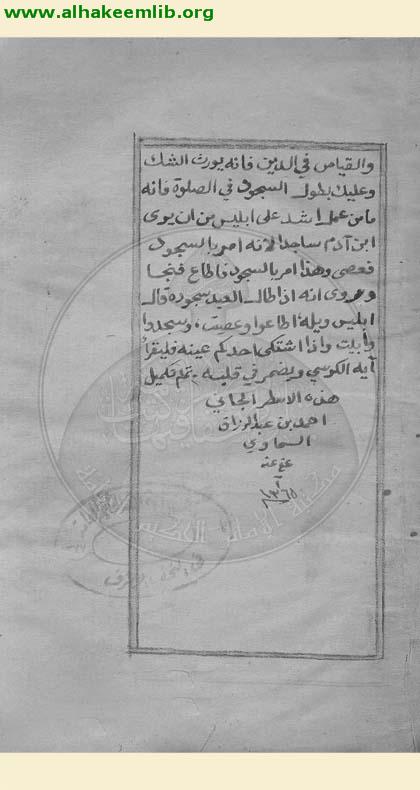 www.alhakeemlib.org
والقياس في الدين فانه يورث الشك
وعليك بطول السجود في الصلوة فانه
ما من عمل اشد على ابليس من ان يرى
ابن آدم ساجدا لانه امر بالسجود
فعصى وهذا امر بالسجود فاطاع فنجا
وروى انه اذا طال العبد سجوده قال
ابليس ويله اطاعوا وعصيت وسجدوا
وأبيت واذا اشتكى احدكم عينه فليقرأ
آية الكرسي ويضمر في قلبه تم تكميل
هذه الاسطر الجاني
احمد بن عبد الرزاق
السماوي
عفي عنه